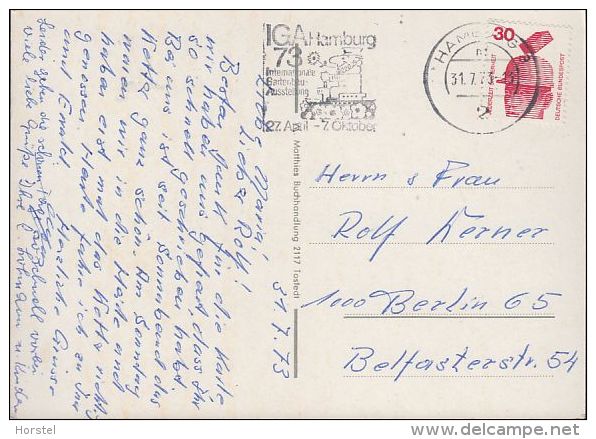 IGA Hamburg
73
Internationale
Gartenbau-
Ausstellung
27. April - 7. Oktober
HAMBURG
31.7.73
2
30
DEUTSCHE BUNDESPOST
JEDERZEIT SICHERHEIT
Matthies Buchhandlung 2117 Tostedt
31.7.73
Liebe Maria!
Lieber Rolf!
Besten Dank für die Karte
wir haben uns gefreut, dass Ihr
so schnell geschrieben habt.
Bei uns ist seit Sonnabend das
Wetter ganz schön. Am Sonntag
waren wir in die Heide und
haben erst mal das Wetter
genossen. Heute fahre ich zu
und Emalei.
Herzliche Grüsse
Leider gehen die schönen Tage so schnell vorbei.
Viele liebe Grüße Ihre
Herrn u Frau
Rolf Kerner
1000 Berlin 65
Belfasterstr. 54
Horstel
www.delcampe.net